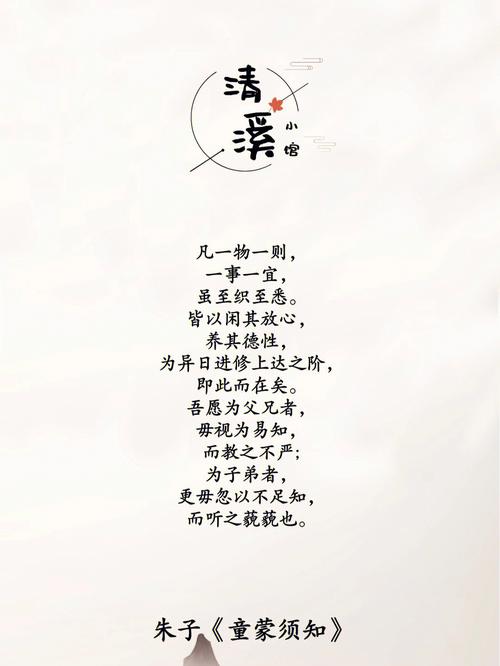 清溪
小馆
凡一物一则，
一事一宜，
虽至织至悉。
皆以闲其放心，
养其德性，
为异日进修上达之阶，
即此而在矣。
吾愿为父兄者，
毋视为易知，
而教之不严；
为子弟者，
更毋忽以不足知，
而听之藐藐也。
朱子《童蒙须知》